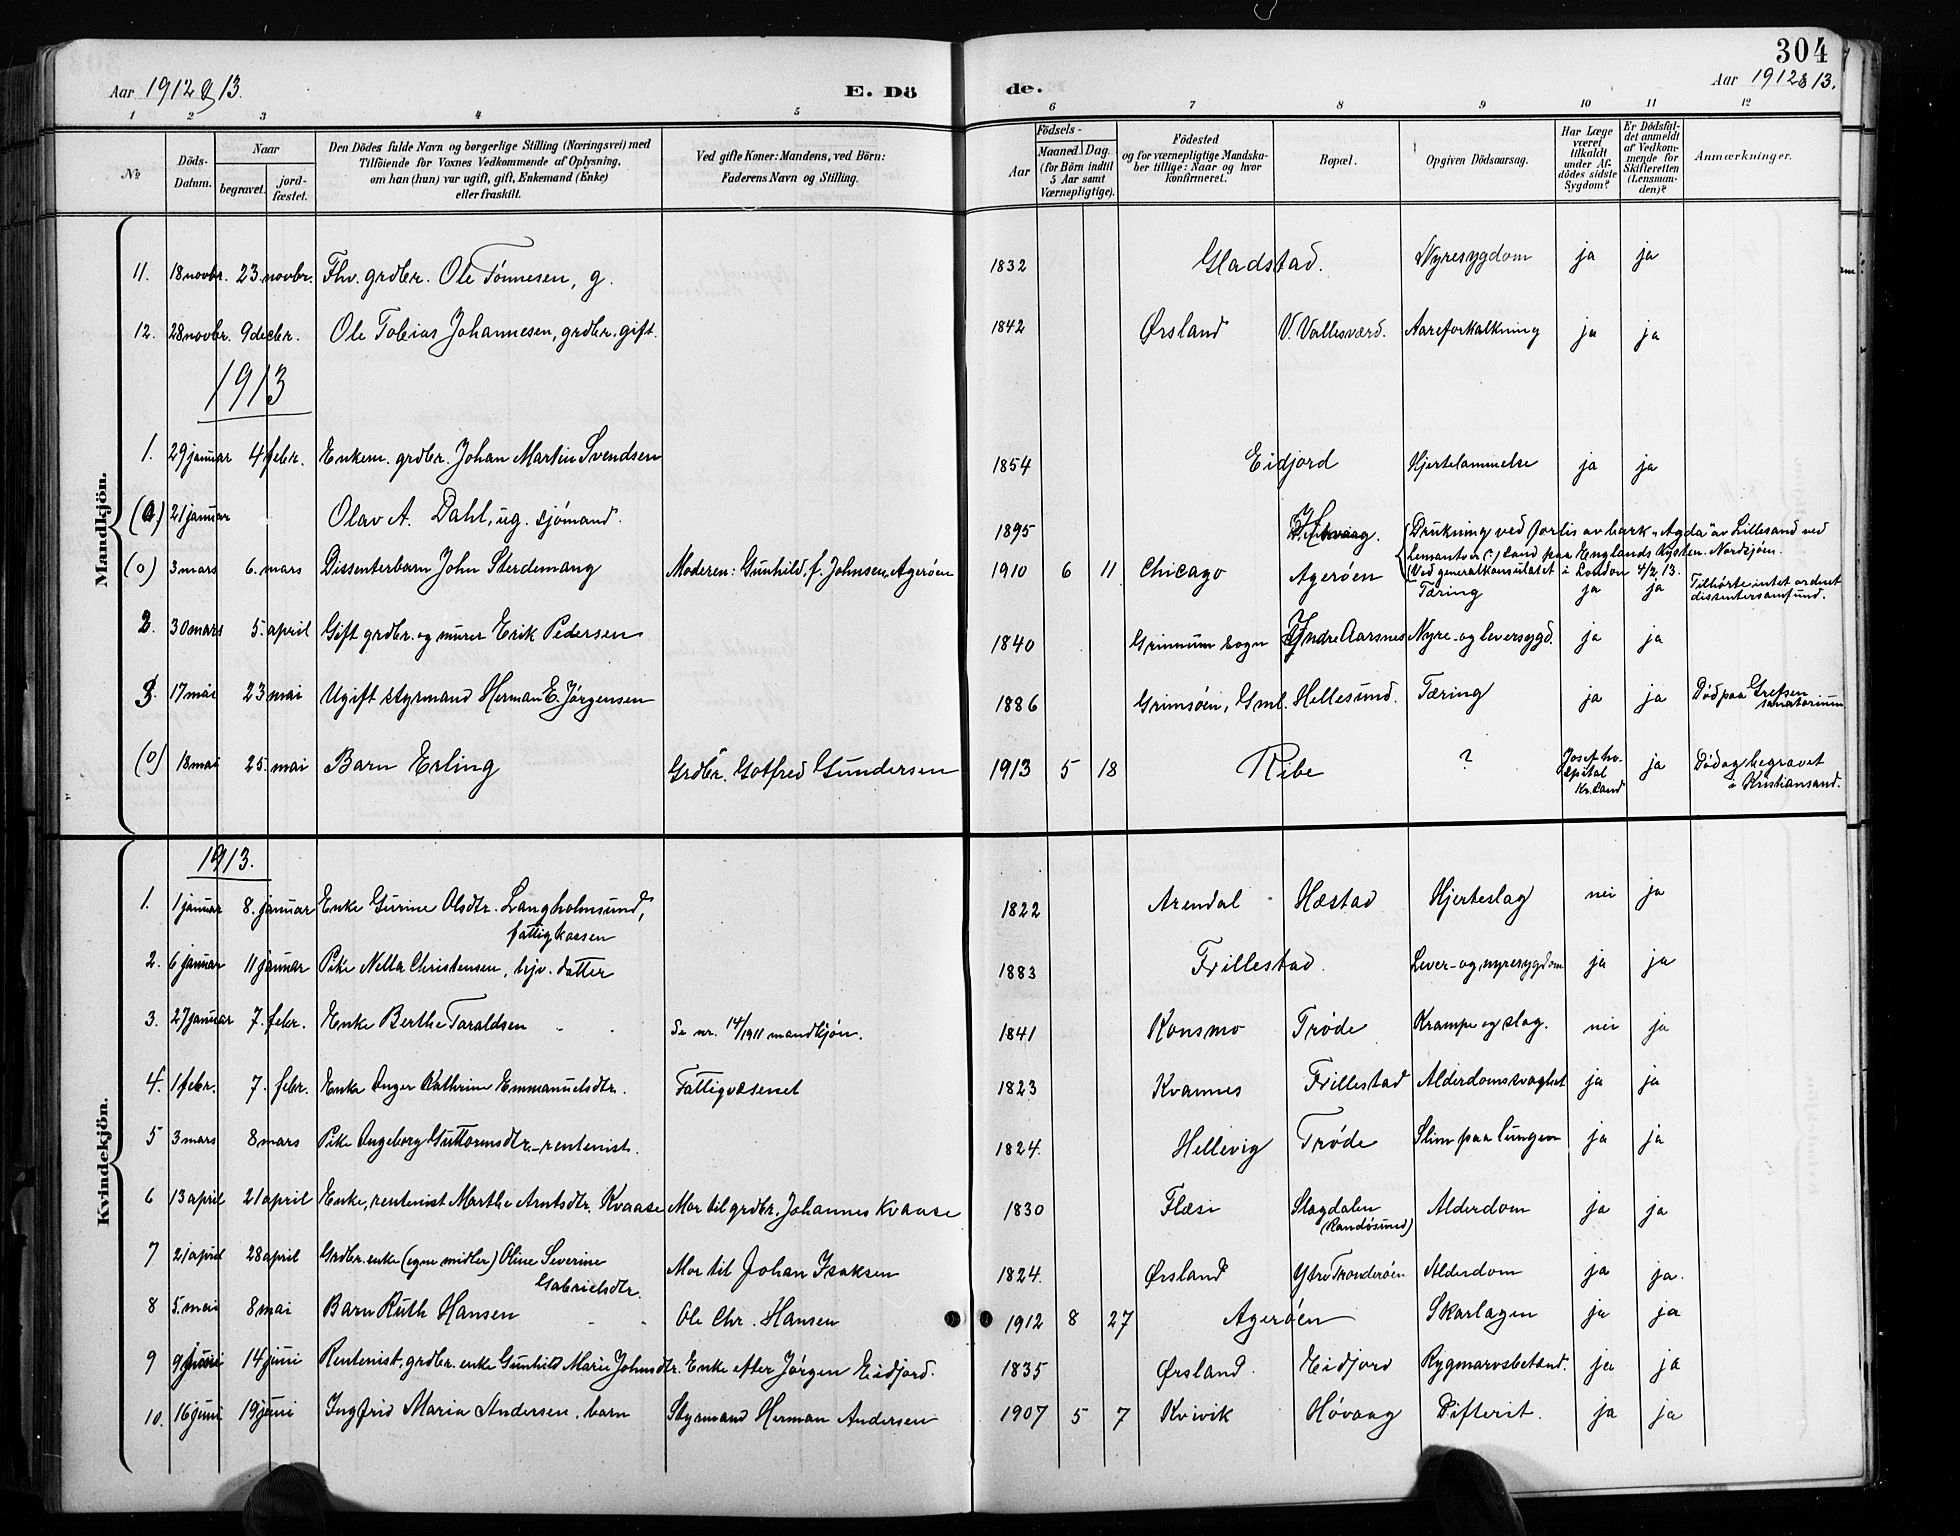 304
Aar 1912 & 13. E. Dö de. Aar 1912 & 13.
1 2 3 4 5 6 7 8 9 10 11 12
No Döds-Datum. Naar begravet. jord-fæstet. Den Dödes fulde Navn og borgerlige Stilling (Næringsvei) med Tilföiende for Voxnes Vedkommende af Oplysning, om han (hun) var ugift, gift, Enkemand (Enke) eller fraskilt. Ved gifte Koner: Mandens, ved Börn: Faderens Navn og Stilling. Födsels- Aar Maaned. Dag. (for Börn indtil 5 Aar samt Værnepligtige). Födested og for værnepligtige Mandskaber tillige: Naar og hvor konfirmeret. Bopæl. Opgiven Dödsaarsag. Har Læge været tilkaldt under Afdödes sidste Sygdom? Er Dödsfaldet anmeldt af Vedkommende for Skifteretten (Lensmanden)? Anmærkninger.
Mandkjön.
11. 18 novbr. 23. novbr. Fhv. grdbr. Ole Tönnesen, g. 1832 Gladstad. Nyresygdom ja ja
12. 28 novbr. 9 decbr. Ole Tobias Johannesen, grdbr. gift. 1842 Ørsland V. Vallesværd. Aareforkalkning ja ja
1913
1. 29 januar 4 febr. Enkem. grdbr. Johan Martin Svendsen 1854 Eidjord Hjertelammelse ja ja
21 januar Olav A. Dahl, ug. sjömand. 1895 (Drukning ved forlis av bark "Agda" av Lillesand ved
land paa Englands kysten. Nordsjöen.
(Ved generalkonsulatet i London 4/2 13.
(0) 3 mars 6. mars Dissenterbarn John Sterdemang Moderen: Gunhild f. Johnsen, Agerøen 1910 6 11 Chicago Agerøen Tæring ja ja Tilhørte intet ordnet dissentersamfund.
2. 30 mars 5. april Gift grdbr. og murer Erik Pedersen 1840 Grimnum sogn Indre Aarsnes Nyre- og leversygd. ja ja
3. 17 mai 23 mai Ugift styrmand Herman E. Jørgensen 1886 Grimsøen, Gml. Hellesund. Tæring ja ja Död paa Grefsen sanatorium
(0) 18 mai 25. mai Barn Erling Grdbr. Gotfred Gundersen 1913 5 18 Ribe ? Josef hospital Kr.sand ja Död og begravet i Kristiansand.
Kvindekjön.
1913.
1. 1 januar 8. januar Enke Gurine Olsdtr. Langholmsund, fattigkassen 1822 Arendal Hæstad Hjerteslag nei ja
2. 6 januar 11 januar Pike Nella Christensen, hjv. datter 1883 Frillestad. Lever- og nyresygdom ja ja
3. 27 januar 7. febr. Enke Berthe Taraldsen Se nr. 14/1911 mandkjön. 1841 Konsmo Trøde Krampe og slag. nei ja
4. 1 febr. 7. febr. Enke Inger Kathrine Emmanuelsdtr. Fattigvæsenet 1823 Kvannes Frillestad Alderdomssvaghet ja ja
5 3 mars 8 mars Pike Ingeborg Guttormsdtr. - rentenist. 1824. Hellevig Trøde Slim paa lungen ja ja
6 13 april 21 april Enke, rentenist Marthe Arntsdtr. Kvaase Mor til grdbr. Johannes Kvaase 1830 Flæsi Slagdalen (Randøsund) Alderdom ja ja
7 21 april 28 april Grdbr. enke (egne midler) Oline Severine Gabrielsdtr. Mor til Johan Isaksen 1824. Ørsland Ytre Tronderøen Alderdom ja ja.
8 5. mai 8 mai Barn Ruth Hansen Ole Chr. Hansen 1912 8 27 Agerøen Skarlagen ja ja
9 9 juni 14 juni Rentenist, grdbr. enke Gunhild Marie Johnsdtr. Enke efter Jørgen Eidjord. 1835 Ørsland. Eidjord Rygmarvsbetænd. ja ja
10. 16 juni 19 juni Ingfrid Maria Andersen, barn Styrmand Herman Andersen 1907 5 7 Kvivik Høvaag Difterit. ja ja